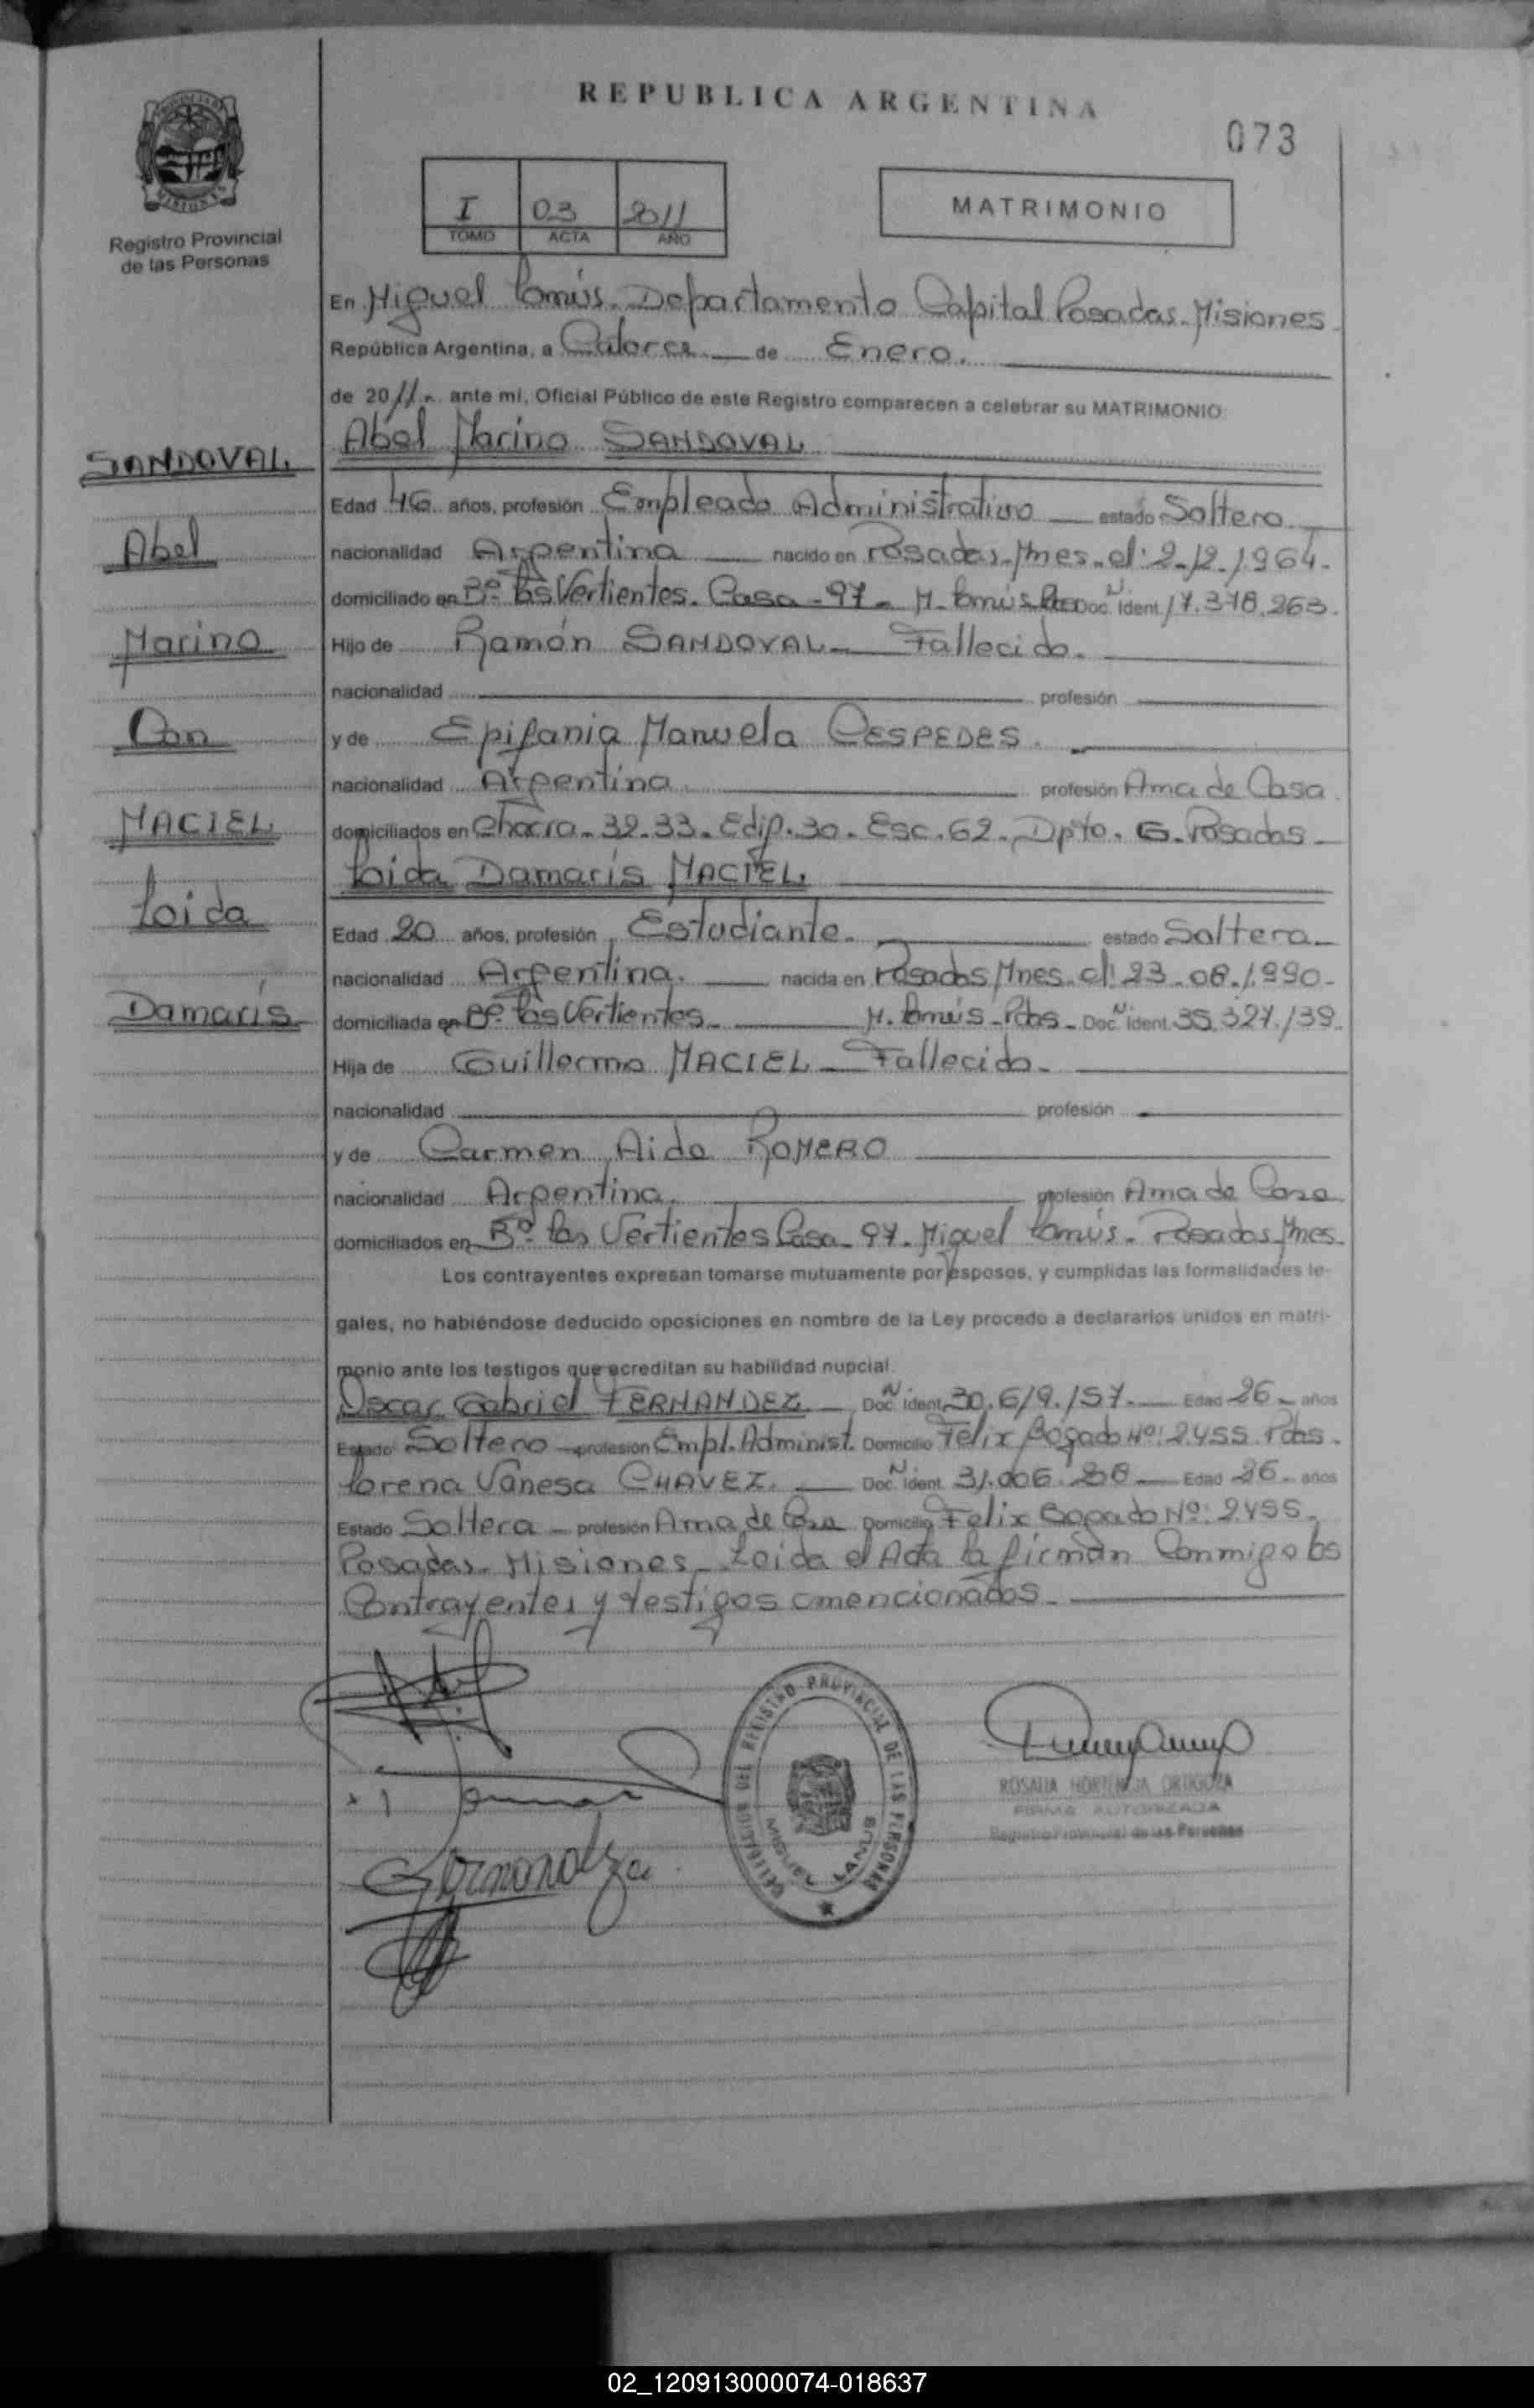 REPUBLICA ARGENTINA
073
I 03 2011
TOMO ACTA AÑO
MATRIMONIO
Registro Provincial
de las Personas
En Miguel Lanús. Departamento Capital Posadas. Misiones
República Argentina, a Catorce de Enero.
de 2011. ante mí, Oficial Público de este Registro comparecen a celebrar su MATRIMONIO:
Abel Marino SANDOVAL
SANDOVAL
Edad 46 años, profesión Empleado Administrativo estado Soltero
Abel
nacionalidad Argentina nacido en Posadas-Mnes. el: 2-12-1964.
domiciliado en Bº Las Vertientes. Casa-97- M. Lanús Doc. Ident. 17.378.263.
Marino
Hijo de Ramón SANDOVAL Fallecido.
nacionalidad profesión
Con
y de Epifania Manuela CESPEDES.
nacionalidad Argentina profesión Ama de Casa
MACIEL
domiciliados en Chacra. 32.33. Edif. 30. Esc. 62. Dpto. G. Posadas
Loida Damaris MACIEL.
Loida
Edad 20 años, profesión Estudiante. estado Soltera
nacionalidad Argentina. nacida en Posadas Mnes. el: 23-08-1990.
Damaris
domiciliada en Bº. Las Vertientes. M. Lanús-Pdas- Doc. Ident. 35.327.139.
Hija de Guillermo MACIEL Fallecido.
nacionalidad profesión
y de Carmen Aida ROMERO
nacionalidad Argentina. profesión Ama de Casa
domiciliados en Bº. Las Vertientes Casa-97. Miguel Lanús. Posadas Mnes.
Los contrayentes expresan tomarse mutuamente por esposos, y cumplidas las formalidades le-
gales, no habiéndose deducido oposiciones en nombre de la Ley procedo a declararlos unidos en matri-
monio ante los testigos que acreditan su habilidad nupcial.
Oscar Gabriel FERNANDEZ Doc. Ident. 30.619.157. Edad 26 años
Estado Soltero profesión Empl. Administ. Domicilio Felix Bogado Nº: 2455 Pdas.
Lorena Vanesa CHAVEZ. Doc. Ident. 31.006.208 Edad 26 años
Estado Soltera profesión Ama de Casa Domicilio Felix Bogado Nº: 2455.
Posadas. Misiones. Leida el Acta la firman Conmigo los
Contrayentes y testigos mencionados.
DEL REGISTRO PROVINCIAL DE LAS PERSONAS
MIGUEL LANUS
ROSALIA HORTENCIA ORTIGOZA
FIRMA AUTORIZADA
Registro Provincial de las Personas
02_120913000074-018637